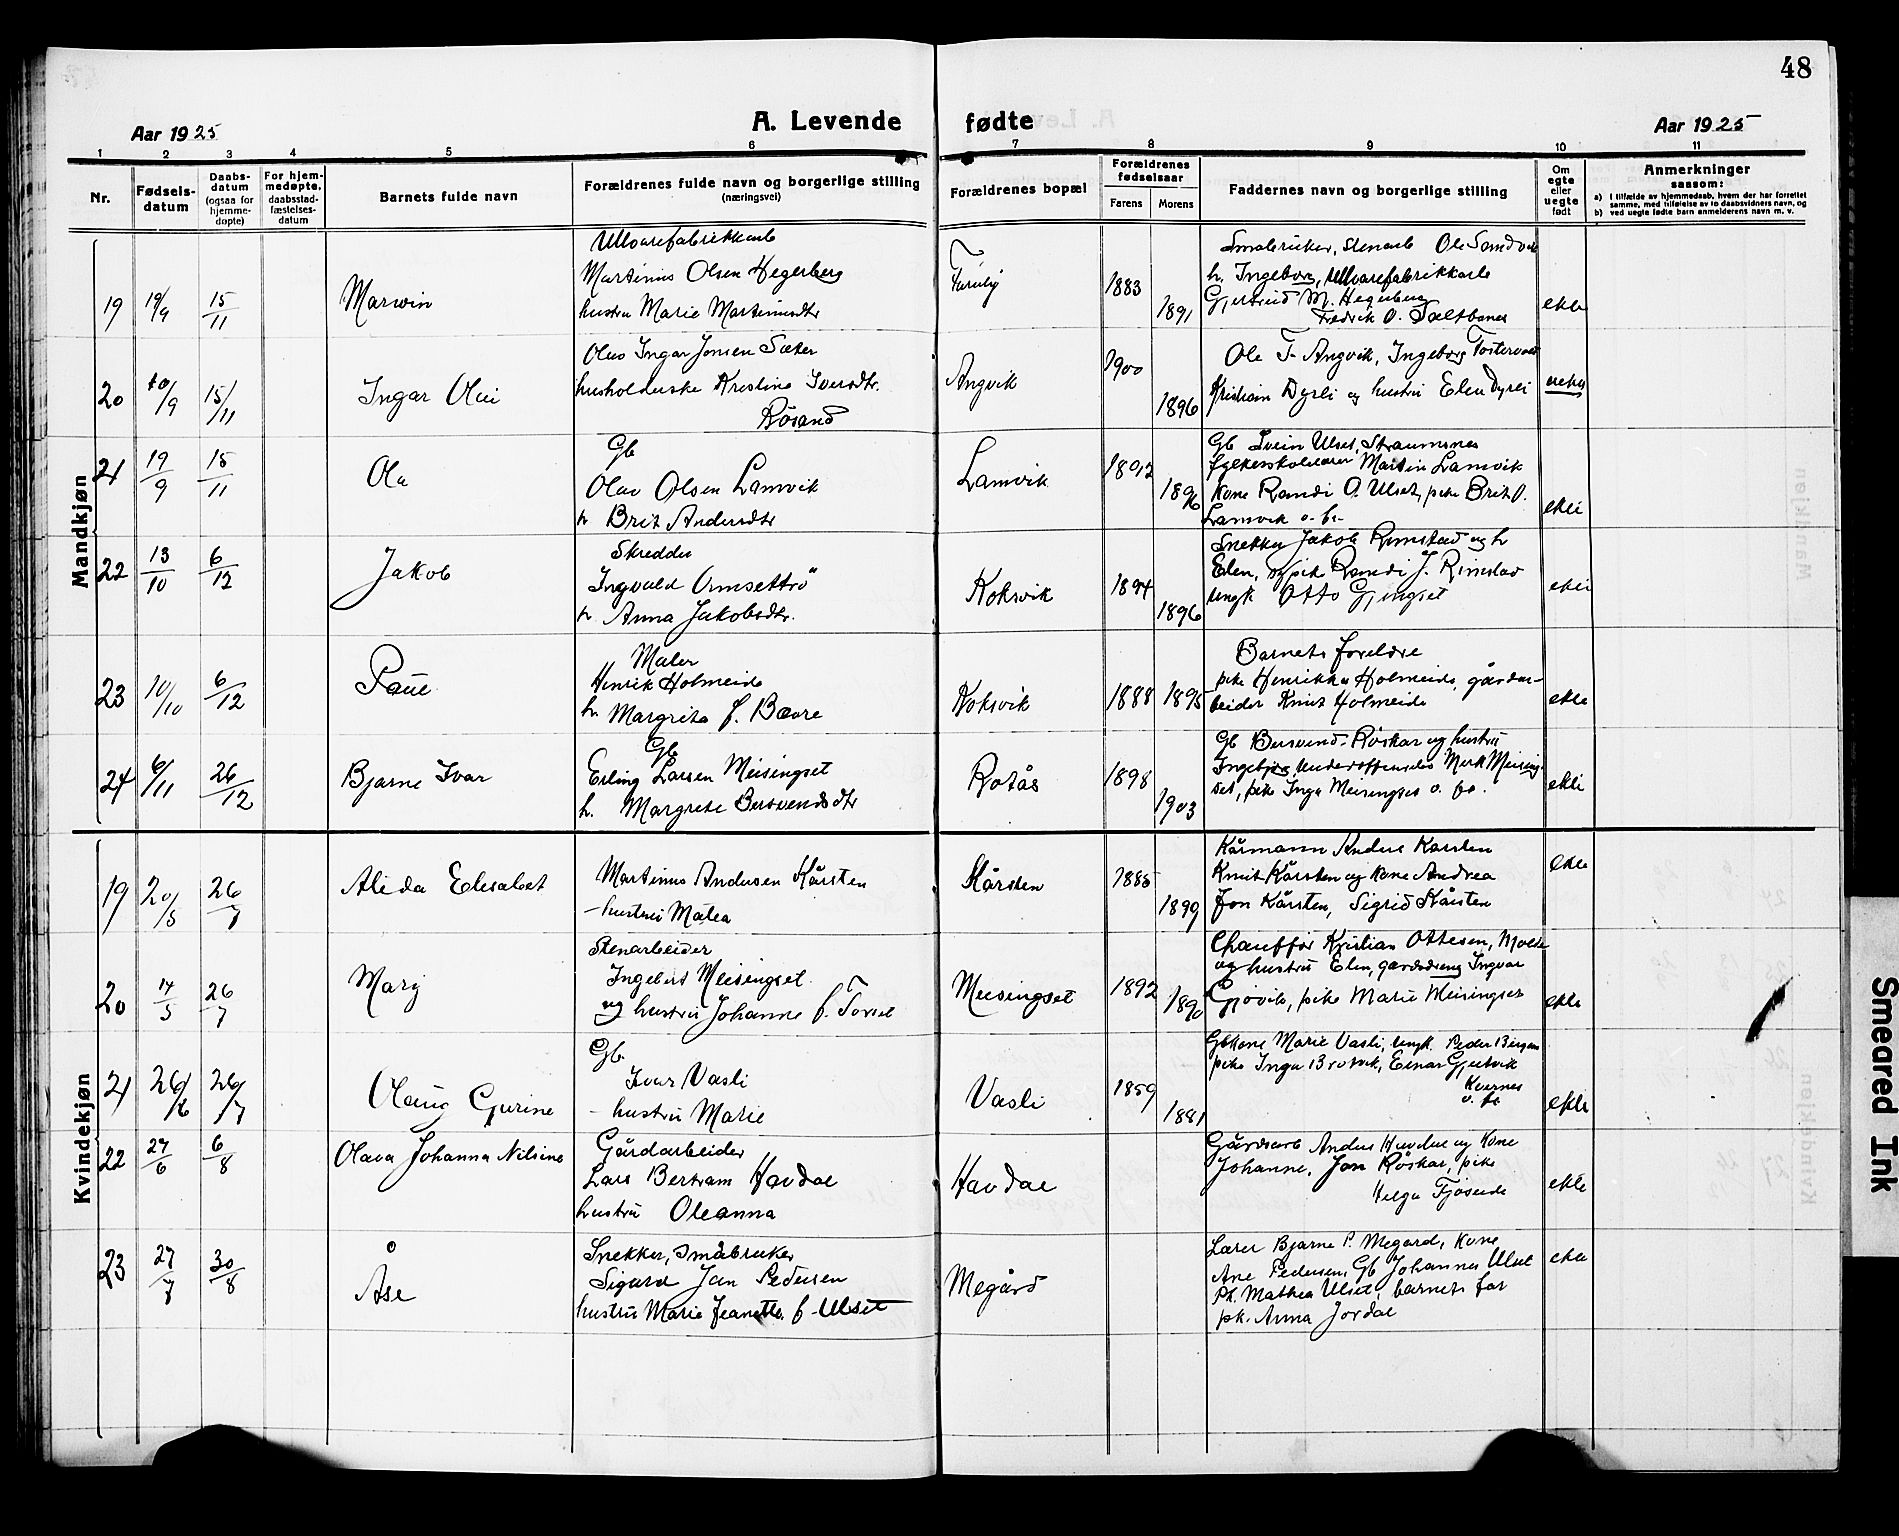 48
Aar 1925
A. Levende fødte
Aar 1925
1 2 3 4 5 6 7 8 9 10 11
Nr.
Fødsels-
datum
Daabs-
datum
(ogsaa for
hjemme-
døpte)
For hjem-
medøpte,
daabsstad-
fæstelses-
datum
Barnets fulde navn
Forældrenes fulde navn og borgerlige stilling
(næringsvei)
Forældrenes bopæl
Forældrenes
fødselsaar
Farens Morens
Faddernes navn og borgerlige stilling
Om
egte
eller
uegte
født
Anmerkninger
saasom:
a) i tilfælde av hjemmedaab, hvem der har forrettet
samme, med tilføielse av to daabsvidners navn, og
b) ved uegte fødte barn anmelderens navn m. v.
Mandkjøn
19 19/9 15/11 Marwin
Ullvarefabrikkarb
Martinus Olsen Hegerberg
hustru Marie Martinusdtr
1883 1891
Småbruker, stenarb Ole Sandvik
h. Ingeborg, Ullvarefabrikkarb
Gjertrud M. Hegerberg
Fredrik O. Saltbones
ekte
20 10/9 15/11 Ingar Olui
Olus Ingar Jonsen Sæter
husholderske Kristine Iversdtr.
Røsand
Angvik
1900 1896
Ole T. Angvik, Ingeborg
Kristian Dyrli og hustru Elen Dyrli
uekte
21 19/9 15/11 Ola
Gb
Olav Olsen Lamvik
h Brit Andersdtr
Lamvik
1892 1896
Gb Svein Ulset, Straumsnes
Martin Lamvik
Kone Randi O. Ulset, pike Brit O.
Lamvik o. fl.
ekte
22 13/10 6/12 Jakob
Skredder
Ingvald Ormsettrö
h. Anna Jakobsdtr.
Koksvik
1894 1896
Snekker Jakob Rimstad og h
Elen, pike Randi J. Rimstad
ungk Otto Gjengset
ekte
23 10/10 6/12 Paul
Maler
Henrik Holmeide
h. Margrete f. Bævre
Koksvik
1888 1895
Barnets foreldre
pike Henrikka Holmeide, gårdar-
beider Knut Holmeide
ekte
24 6/11 26/12 Bjarne Ivar
Gb
Erling Larsen Meisingset
h. Margrete Bersvendsdtr
Rotås
1898 1903
Gb Bersvend Røskar og hustru
Ingeborg, Meising-
set, pike Inga Meisingset o. fl.
ekte
Kvindekjøn
19 20/5 26/7 Alida Elesabet
Martinus Andersen Kårsten
- hustru Malea
Kårsten
1885 1899
Kårmann Anders Karsten
Knut Kårsten og kone Andrea
Jon Kårsten, Sigrid Kårsten
ekte
20 14/5 26/7 Mary
Stenarbeider
Ingebrit Meisingset
og hustru Johanne f. Torset
Meisingset
1892 1890
Chauffør Kristian Ottesen, Molde
og hustru Elen, gårdsdreng Ingvar
Gjøvik, pike Marie Meisingset
ekte
21 26/6 26/7 Olaug Gurine
Gb.
Ivar Vasli
- hustru Marie
Vasli
1859 1881
Gbkone Marie Vasli, ungk. Peder
pike Inga Brotvik, Einar Gjeitvik
Kvernes
o. fl
ekte
22 27/6 6/8 Olava Johanna Nilsine
Gårdarbeider
Lars Bertram Havdal
hustru Oleanna
Havdal
Gårdsarb Anders Havdal og kone
Johanne, Jon Röskar, pike
Helga Tjöseide
ekte
23 27/7 30/8 Åse
Snekker, småbruker
Sigurd Jan Pedersen
hustru Marie Jeanette f. Ulset
Megård
Lærer Bjarne P. Megard, kone
Ane Pedersen, Gb Johannes Ulset
Pk. Mathea Ulset, barnets far
pk. Anna Jordal
ekte
Smeared Ink